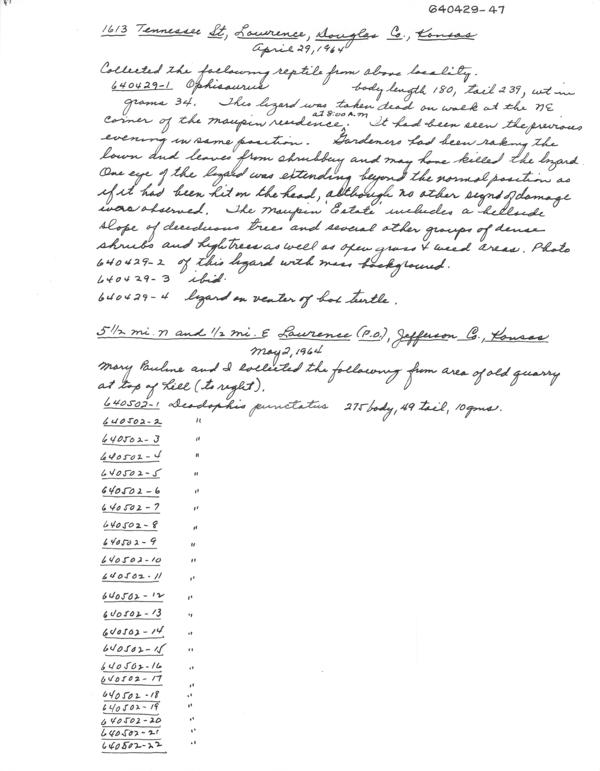 640429-47
1613 Tennessee St, Lawrence, Douglas Co., Kansas
April 29, 1964
Collected the following reptile from above locality.
640429-1 Ophisaurus body length 180, tail 239, wt in
grams 34. This lizard was taken dead on walk at the NE
corner of the Maupin residence at 8:00 A.M. It had been seen the previous
evening in same position. Gardeners had been raking the
lawn and leaves from shrubbery and may have killed the lizard
One eye of the lizard was extending beyond the normal position as
if it had been hit on the head, although no other signs of damage
were observed. The Maupin Estate includes a hillside
slope of deciduous trees and several other groups of dense
shrubs and high trees as well as open grass & weed areas. Photo
640429-2 of this lizard with moss background.
640429-3 ibid.
640429-4 lizard on venter of box turtle.
5 1/2 mi. N and 1/2 mi. E Lawrence (P.O.), Jefferson Co., Kansas
May 2, 1964
Mary Pauline and I collected the following from area of old quarry
at top of hill (to right).
640502-1 Diadophis punctatus 275 body, 49 tail, 10 gms.
640502-2 "
640502-3 "
640502-4 "
640502-5 "
640502-6 "
640502-7 "
640502-8 "
640502-9 "
640502-10 "
640502-11 "
640502-12 "
640502-13 "
640502-14 "
640502-15 "
640502-16 "
640502-17 "
640502-18 "
640502-19 "
640502-20 "
640502-21 "
640502-22 "